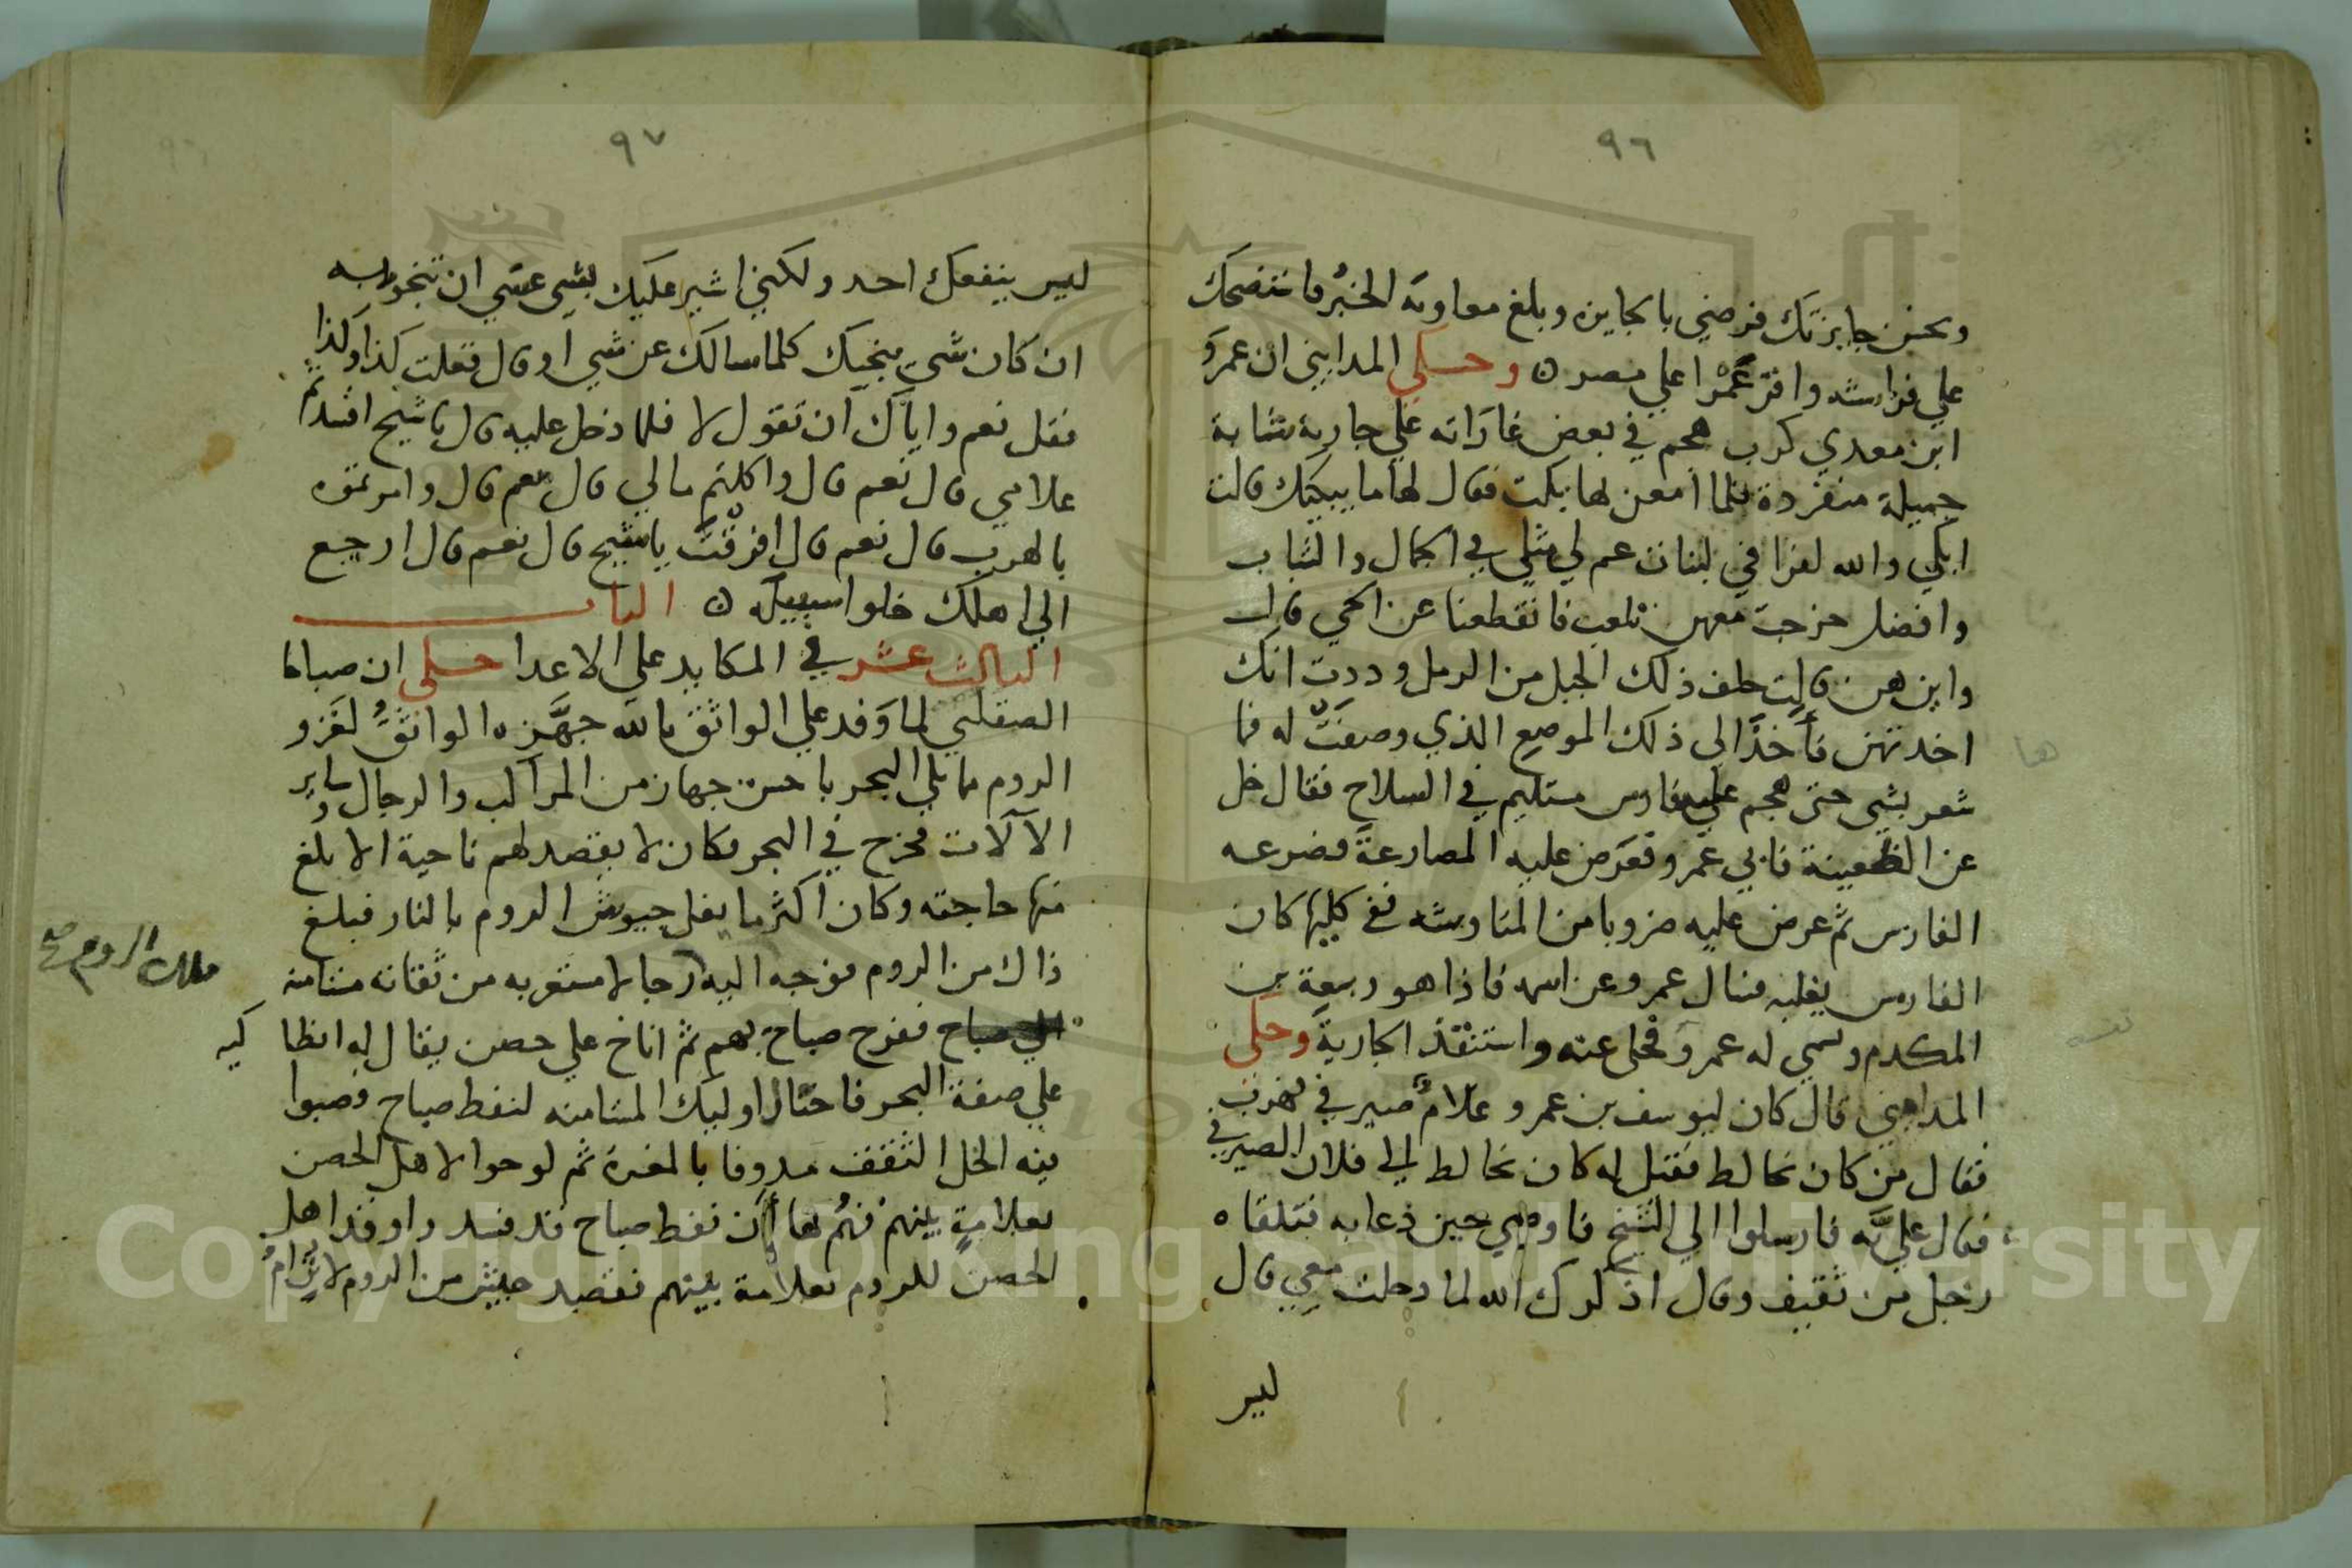 ٩٦
ونحسن جايزتك فرضي بالجايزه وبلغ معاوية الخبرُ فاستضحك
علي فراشه واقرّ عَمْرا علي مصر وحكي المدايني ان عمرَو
ابن معدي كرب هجم في بعض غاراته علي جارية شابة
جميلة منفردة فلما امعن لها بكت فقال لها ما يبكيك قالت
ابكي والله لفراقي بنات عم لي مثلي في الجمال والشباب
وافضل خرجت معهن نلعب فانقطعنا عن الحي قال
واين هن قالت خلف ذلك الجبل من الرمل ووددت انك
اخدتهن فأخذ الي ذلك الموضع الذي وصفتْ له فما
شعر بشي حتي هجم عليه فارس مستليم في السلاح فقال خل
عن الظعينة فابي عمرو فعرض عليه المصارعة فصرعه
الفارس ثم عرض عليه ضروبا من المناوشه ففي كليها كان
الفارس يغلبه فسال عمرو عن اسمه فاذا هو ربيعة بن
المكدم وسمي له عمرو فخلي عنه واستنقذ الجارية وحكي
المدايني قال كان ليوسف بن عمرو غلامٌ صيرفي فهرب
فقال من كان يخالط فقيل له كان يخالط فلان الصيرفي
فقال عليَّ به فارسلوا الي الشيخ فاوتي حين دعا به فتلقاه
رجل من ثقيف وقال اذكرك الله لما دخلت معي قال
ليس
٩٧
ليس ينفعك احد ولكني اشير عليك بشي عسي ان تنجو به
ان كان شي ينجيك كلما سالك عن شي او قال فعلت كذا وكذا
فقل نعم واياك ان تقول لا فلما دخل عليه قال يا شيخ افسدتم
غلامي قال نعم قال واكلتم مالي قال نعم قال وامرتموه
بالهرب قال نعم قال افرقتَ يا شيخ قال نعم قال ارجع
الي اهلك خلوا سبيله البا‍ب
الثالث عشر في المكايد علي الاعدا حكي ان صباحا
الصقلبي لما وَفد علي الواثق بالله جهّزه الواثقُ لغزو
الروم مما يلي البحر باحسن جهاز من المراكب والرجال وساير
الآلات فخرج في البحر فكان لا يقصد لهم ناحية الا بلغ
منها حاجته وكان اكثر ما يفل جيوش الروم بالنار فبلغ
ذاك من الروم فوجه اليه رجالا مستعربه من ثقاته مستامنه
ملك الروم صح
الي صباح ففرح صباح بهم ثم اناخ علي حصن يقال له انطا
كيه
علي ضفة البحر فاحتال اوليك المستامنه لنفط صباح وصبوا
فيه الخل الثقيف مدوفا بالمغرة ثم لوحوا لاهل الحصن
بعلامةٍ بينهم فهُم بها أن نفط صباح قد فسد واوقد اهل
الحصن للروم بعلامة بينهم فقصد جيش من الروم لا يُرامُ